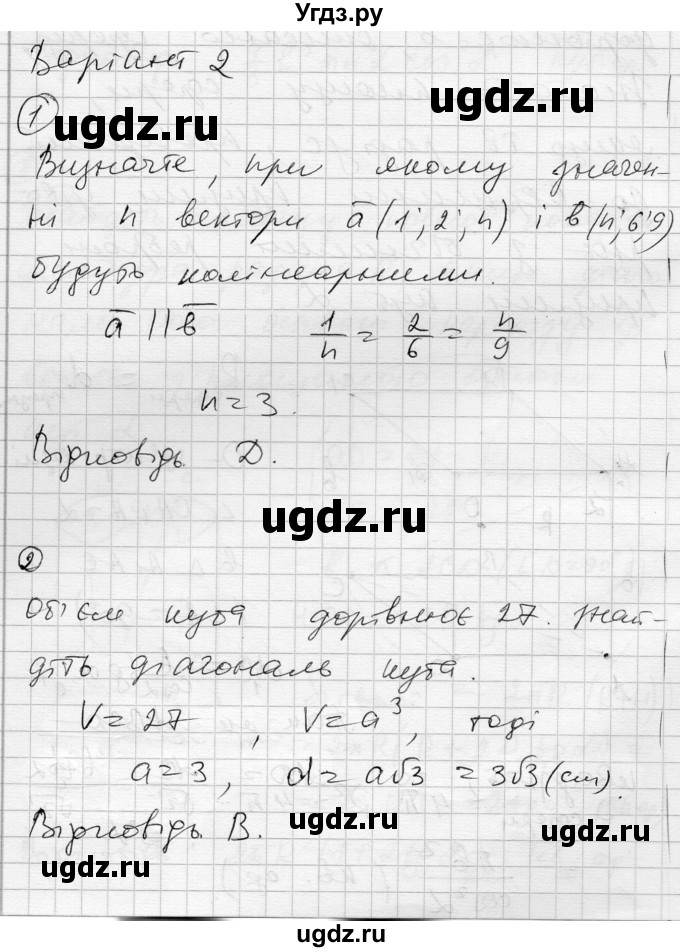 Угдз.ру
Варіант 2
ugdz.ru
ugdz.ru
① Визначте, при якому значен-
ні n вектори a̅(1; 2; n) і b̅(n; 6; 9)
будуть колінеарними.
a̅ || b̅   1/n = 2/6 = n/9
n = 3.
Відповідь D.
ugdz.ru
②
Об'єм куба дорівнює 27. Знай-
діть діагональ куба.
V = 27, V = a³, тоді
a = 3, d = a√3 = 3√3 (см).
ugdz.ru
Відповідь В.
ugdz.ru
ugdz.ru
©ugdz.ru